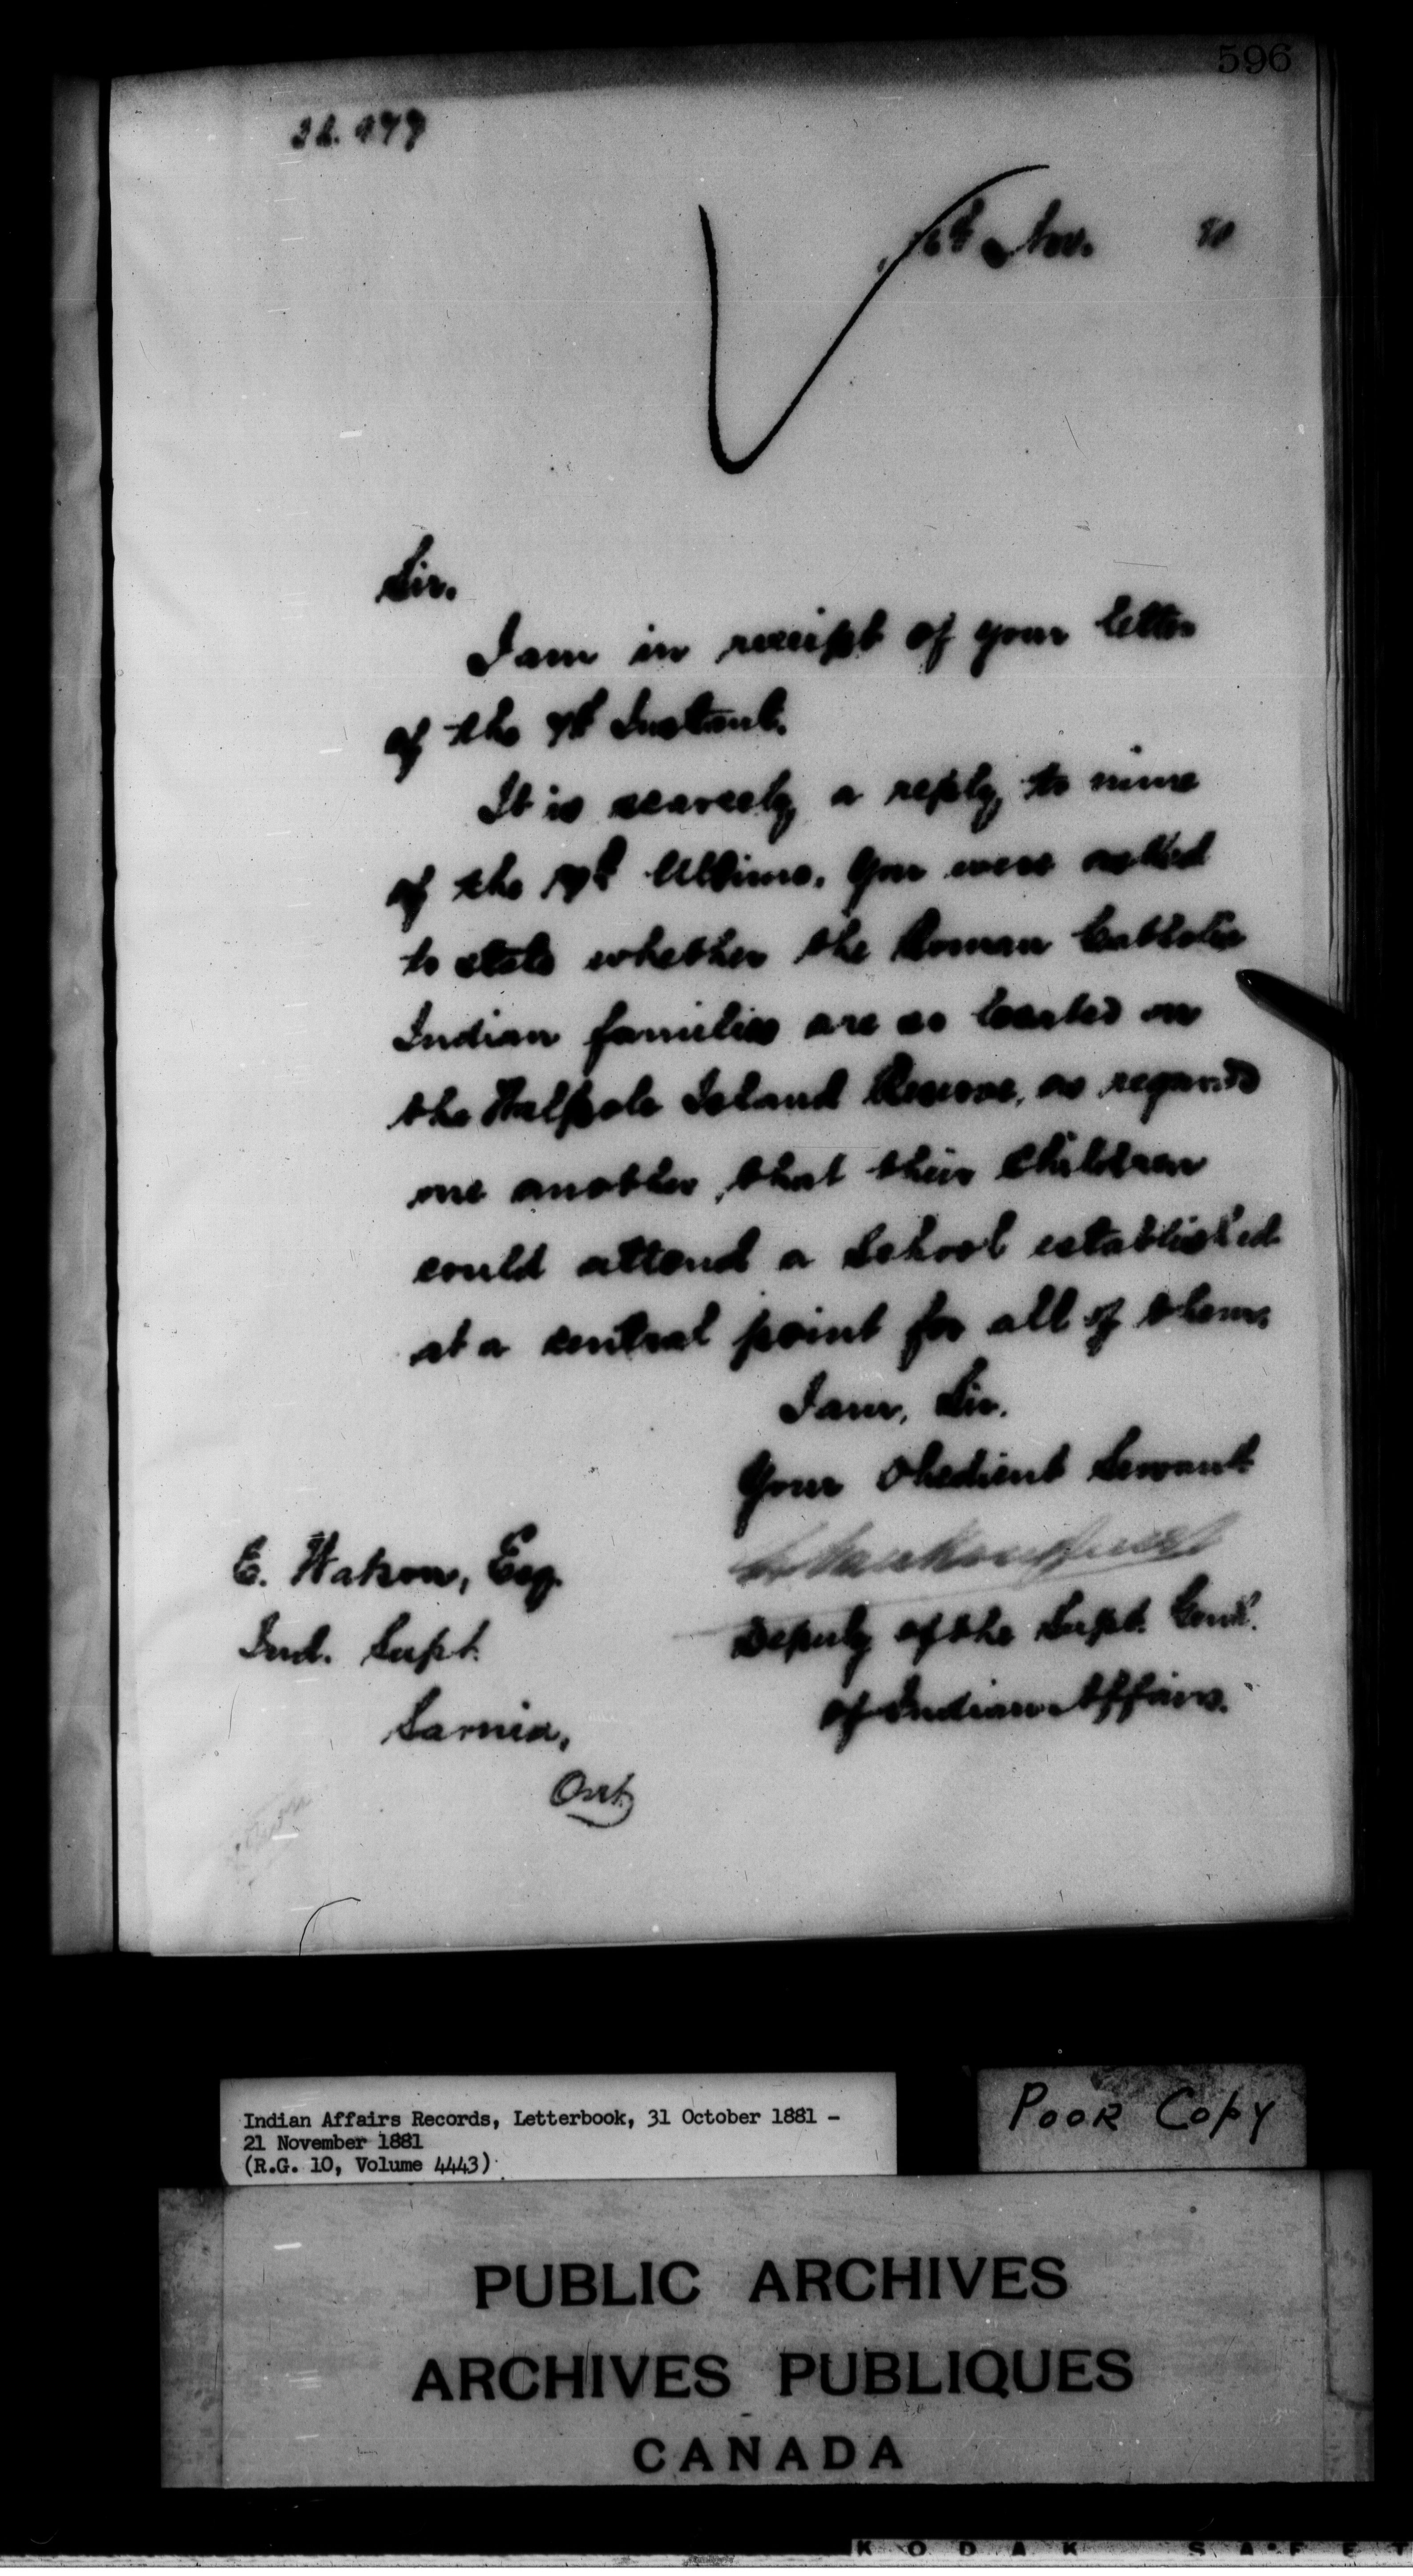 596
Sir.
I am in receipt of your letter
of the 7th Instant.
It is scarcely a reply to mine
of the Ultimo. You were asked
to state whether the Roman Catholic
Indian families are so located on
the Walpole Island Reserve, as regards
one another, that their children
could attend a School established
at a central point for all of them.
I am, Sir.
Your Obedient Servant
Deputy of the Supt. Genl.
of Indian Affairs.
C. Watson, Esq.
Ind. Supt.
Sarnia,
Ont.
Indian Affairs Records, Letterbook, 31 October 1881 -
21 November 1881
(R.G. 10, Volume 4443)
POOR COPY
PUBLIC ARCHIVES
ARCHIVES PUBLIQUES
CANADA
KODAK SAFET